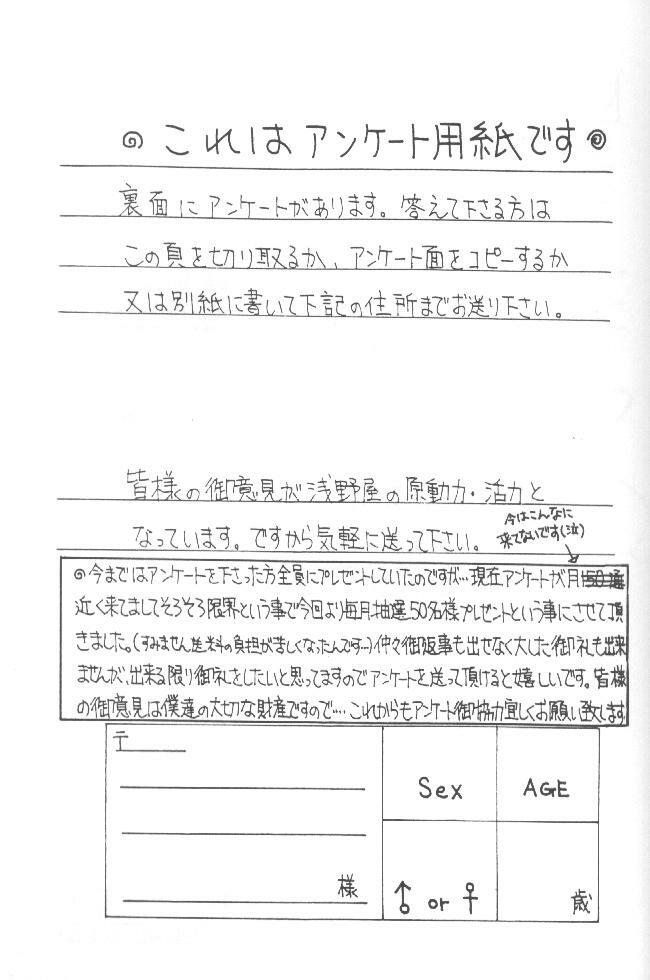 ◎ これは アンケート用紙です ◎
裏面にアンケートがあります。答えて下さる方は
この頁を切り取るか、アンケート面をコピーするか
又は別紙に書いて下記の住所までお送り下さい。
皆様の御意見が浅野屋の原動力・活力と
なっています。ですから気軽に送って下さい。
今はこんなに
来てないです(泣)
◎今まではアンケートを下さった方全員にプレゼントしていたのですが…現在アンケートが月150通
近く来てましてそろそろ限界という事で今回より毎月抽選50名様プレゼントという事にさせて頂
きました。(すみません、送料の負担が苦しくなったんです…)仲々御返事も出せなく大した御礼も出来
ませんが、出来る限り御礼をしたいと思ってますのでアンケートを送って頂けると嬉しいです。皆様
の御意見は僕達の大切な財産ですので…これからもアンケート御協力宜しくお願い致します
〒
様
Sex
AGE
♂ or ♀
歳